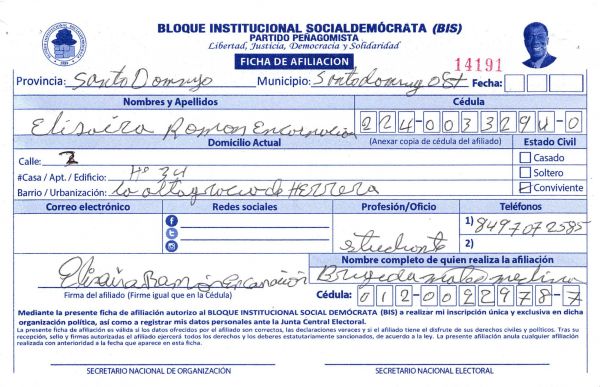 BLOQUE INSTITUCIONAL SOCIALDEMÓCRATA (BIS)
PARTIDO PEÑAGOMISTA
Libertad, Justicia, Democracia y Solidaridad
FICHA DE AFILIACION
14191
Provincia: Santo Domingo Municipio: Santo domingo Fecha:
Nombres y Apellidos Cédula
Elisaira Ramon Encarnacion 224-0033294-0
Domicilio Actual (Anexar copia de cédula del afiliado) Estado Civil
Calle: 2 Casado
#Casa / Apt. / Edificio: Nº 34 Soltero
Barrio / Urbanización: la altagracia de HERRERA Conviviente
Correo electrónico Redes sociales Profesión/Oficio Teléfonos
1) 8497072585
estudiante 2)
Nombre completo de quien realiza la afiliación
Elisaira Ramón Encarnación Brigida
Firma del afiliado (Firme igual que en la Cédula) Cédula: 012-0022978-7
Mediante la presente ficha de afiliación autorizo al BLOQUE INSTITUCIONAL SOCIAL DEMÓCRATA (BIS) a realizar mi inscripción única y exclusiva en dicha
organización política, así como a registrar mis datos personales ante la Junta Central Electoral.
La presente ficha de afiliación es válida si los datos ofrecidos por el afiliado son correctos, las declaraciones veraces y si el afiliado tiene el disfrute de sus derechos civiles y políticos. Tras su
recepción, sello y firmas autorizadas el afiliado ejercerá todos los derechos y los deberes estatutariamente sancionados, de acuerdo a la ley. La presente afiliación anula cualquier afiliación
realizada con anterioridad a la fecha que aparece en esta ficha.
SECRETARIO NACIONAL DE ORGANIZACIÓN SECRETARIO NACIONAL ELECTORAL